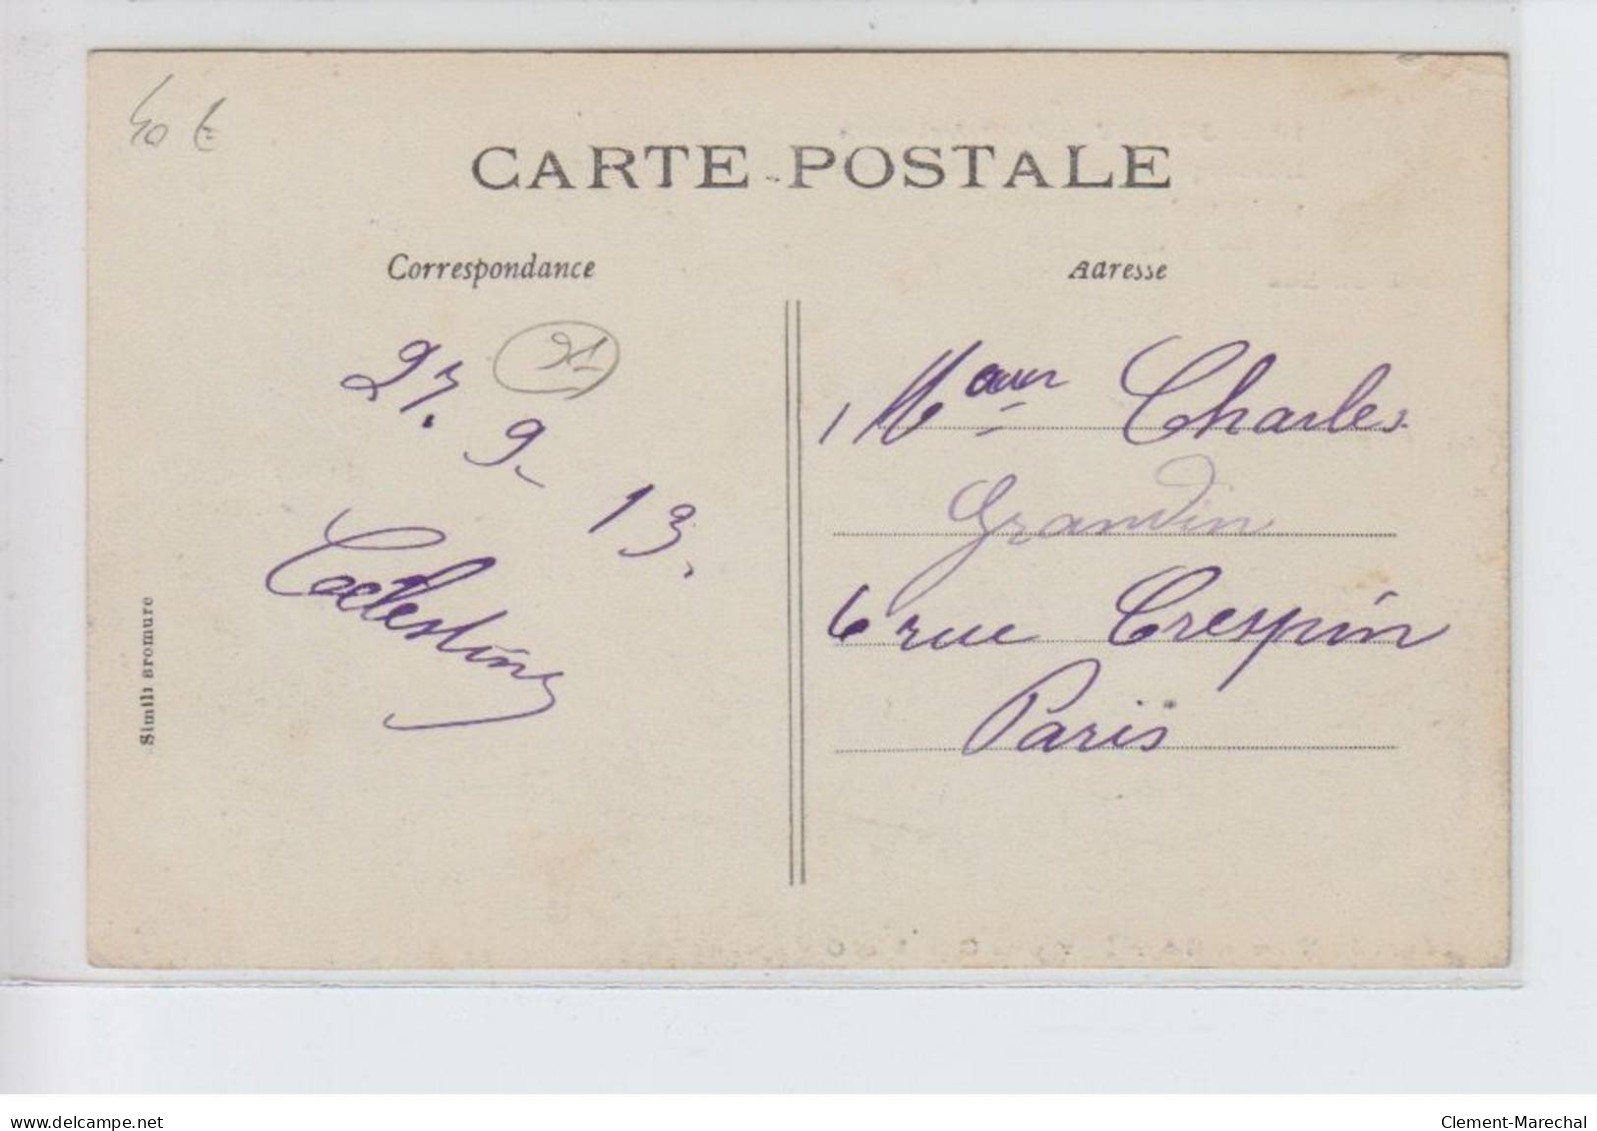 40 €
CARTE POSTALE
Correspondance
Adresse
91
27.
9-
13.
Celestine
Simili Bromure
Charles
Grandin
6 rue Crespin
Paris
delcampe.net
Clement-Marechal